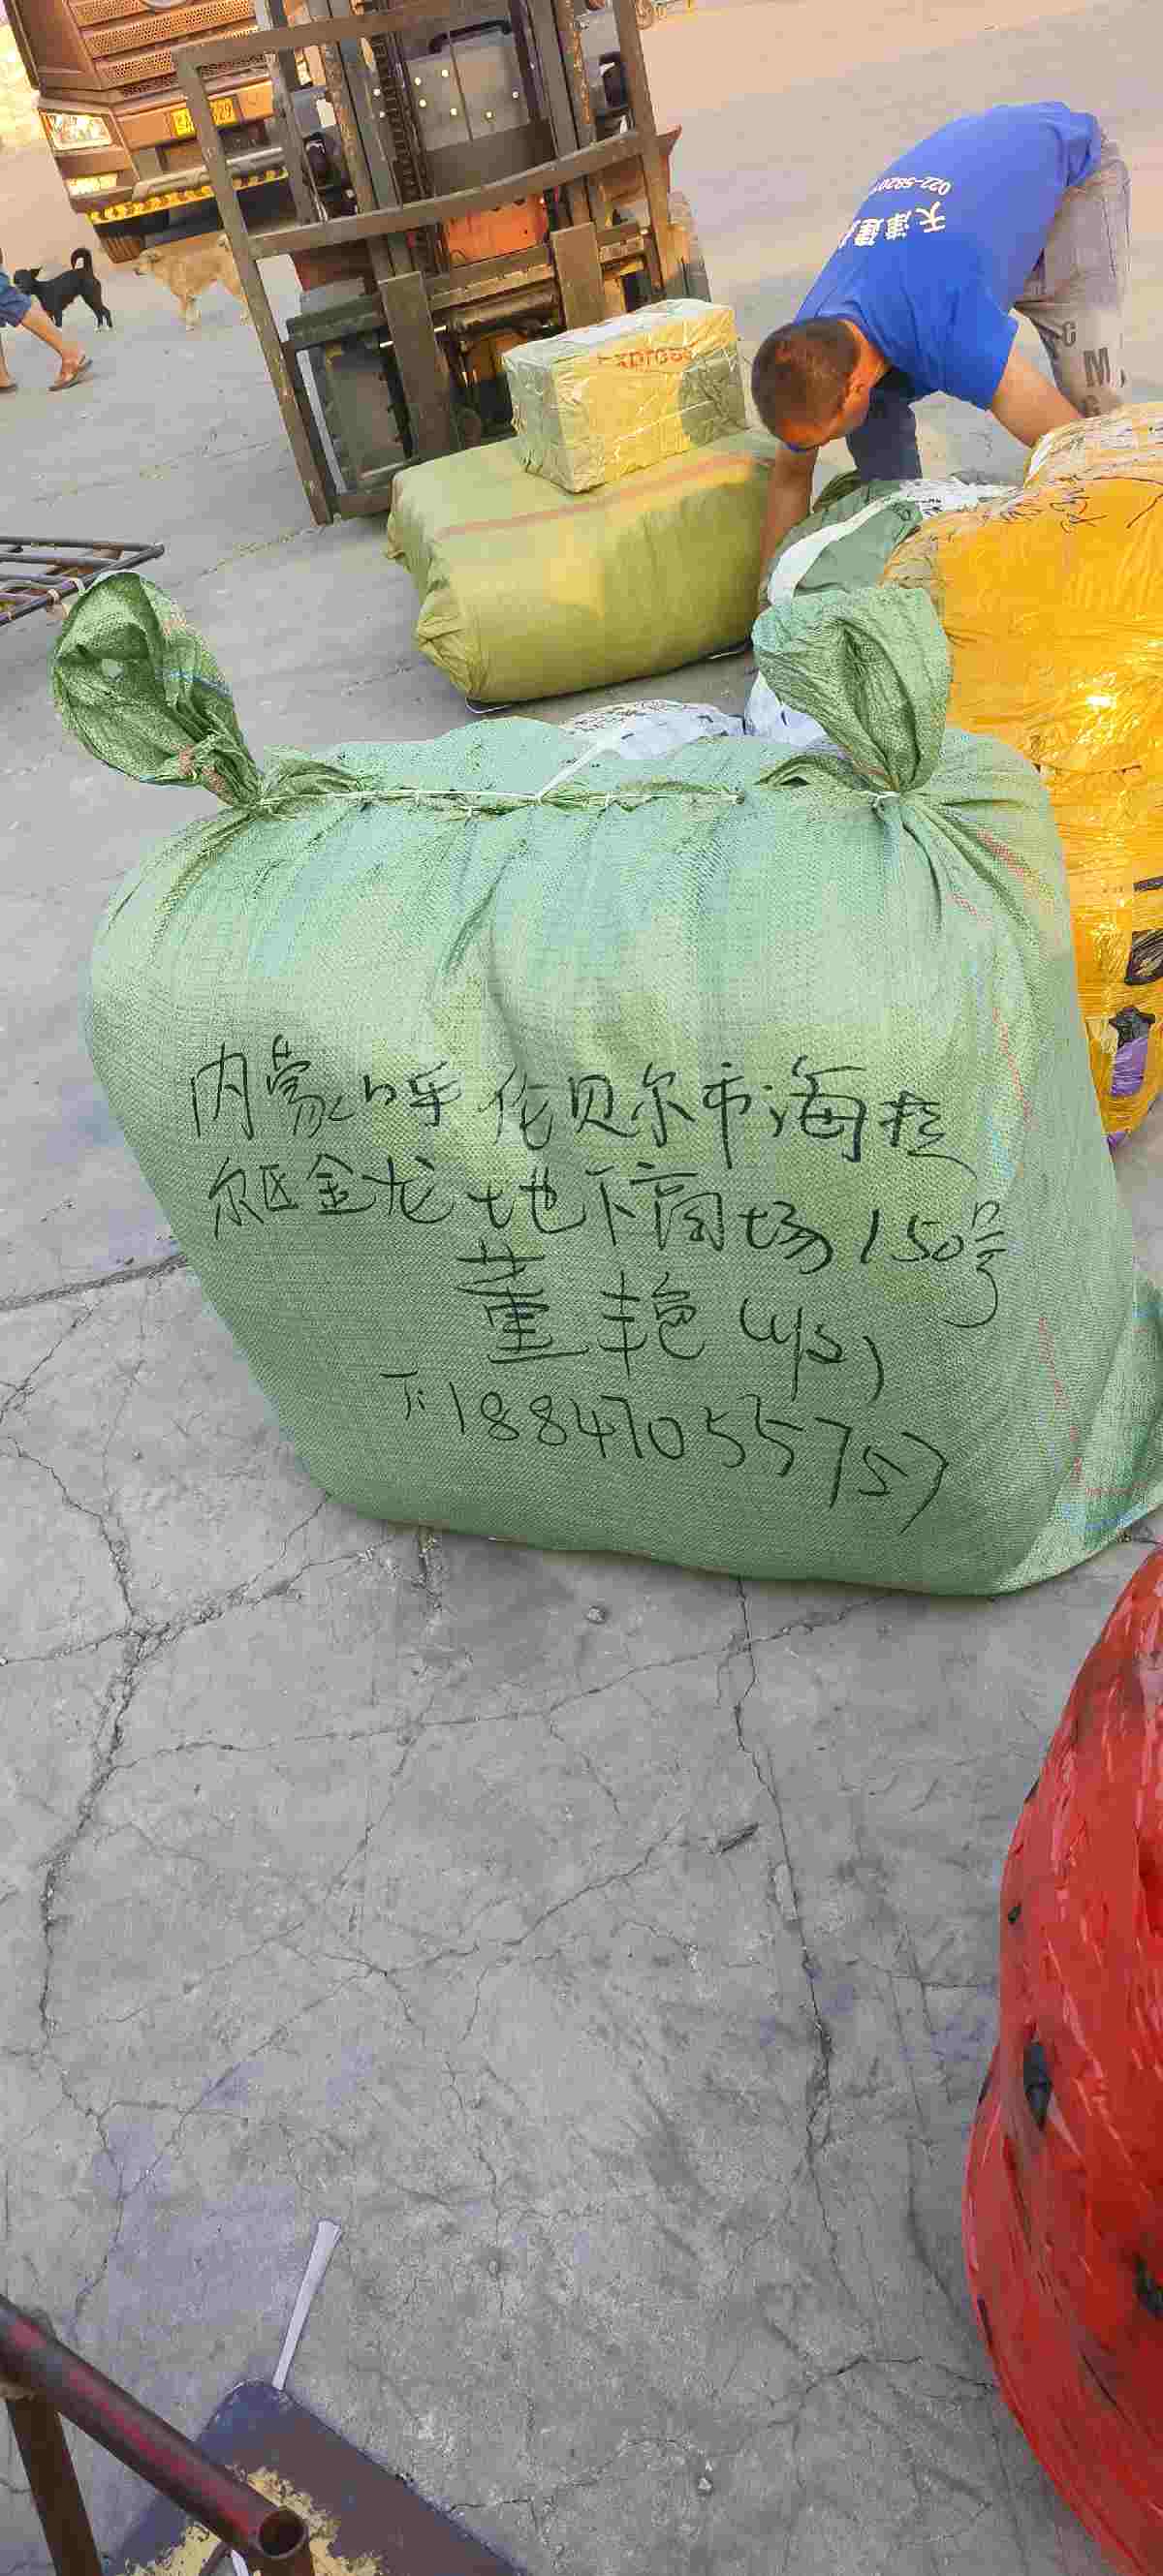 Express
022-5820
天津建
C
M
内蒙呼伦贝尔市海拉
尔区金龙地下商场150号
董艳(收)
T:18847055757